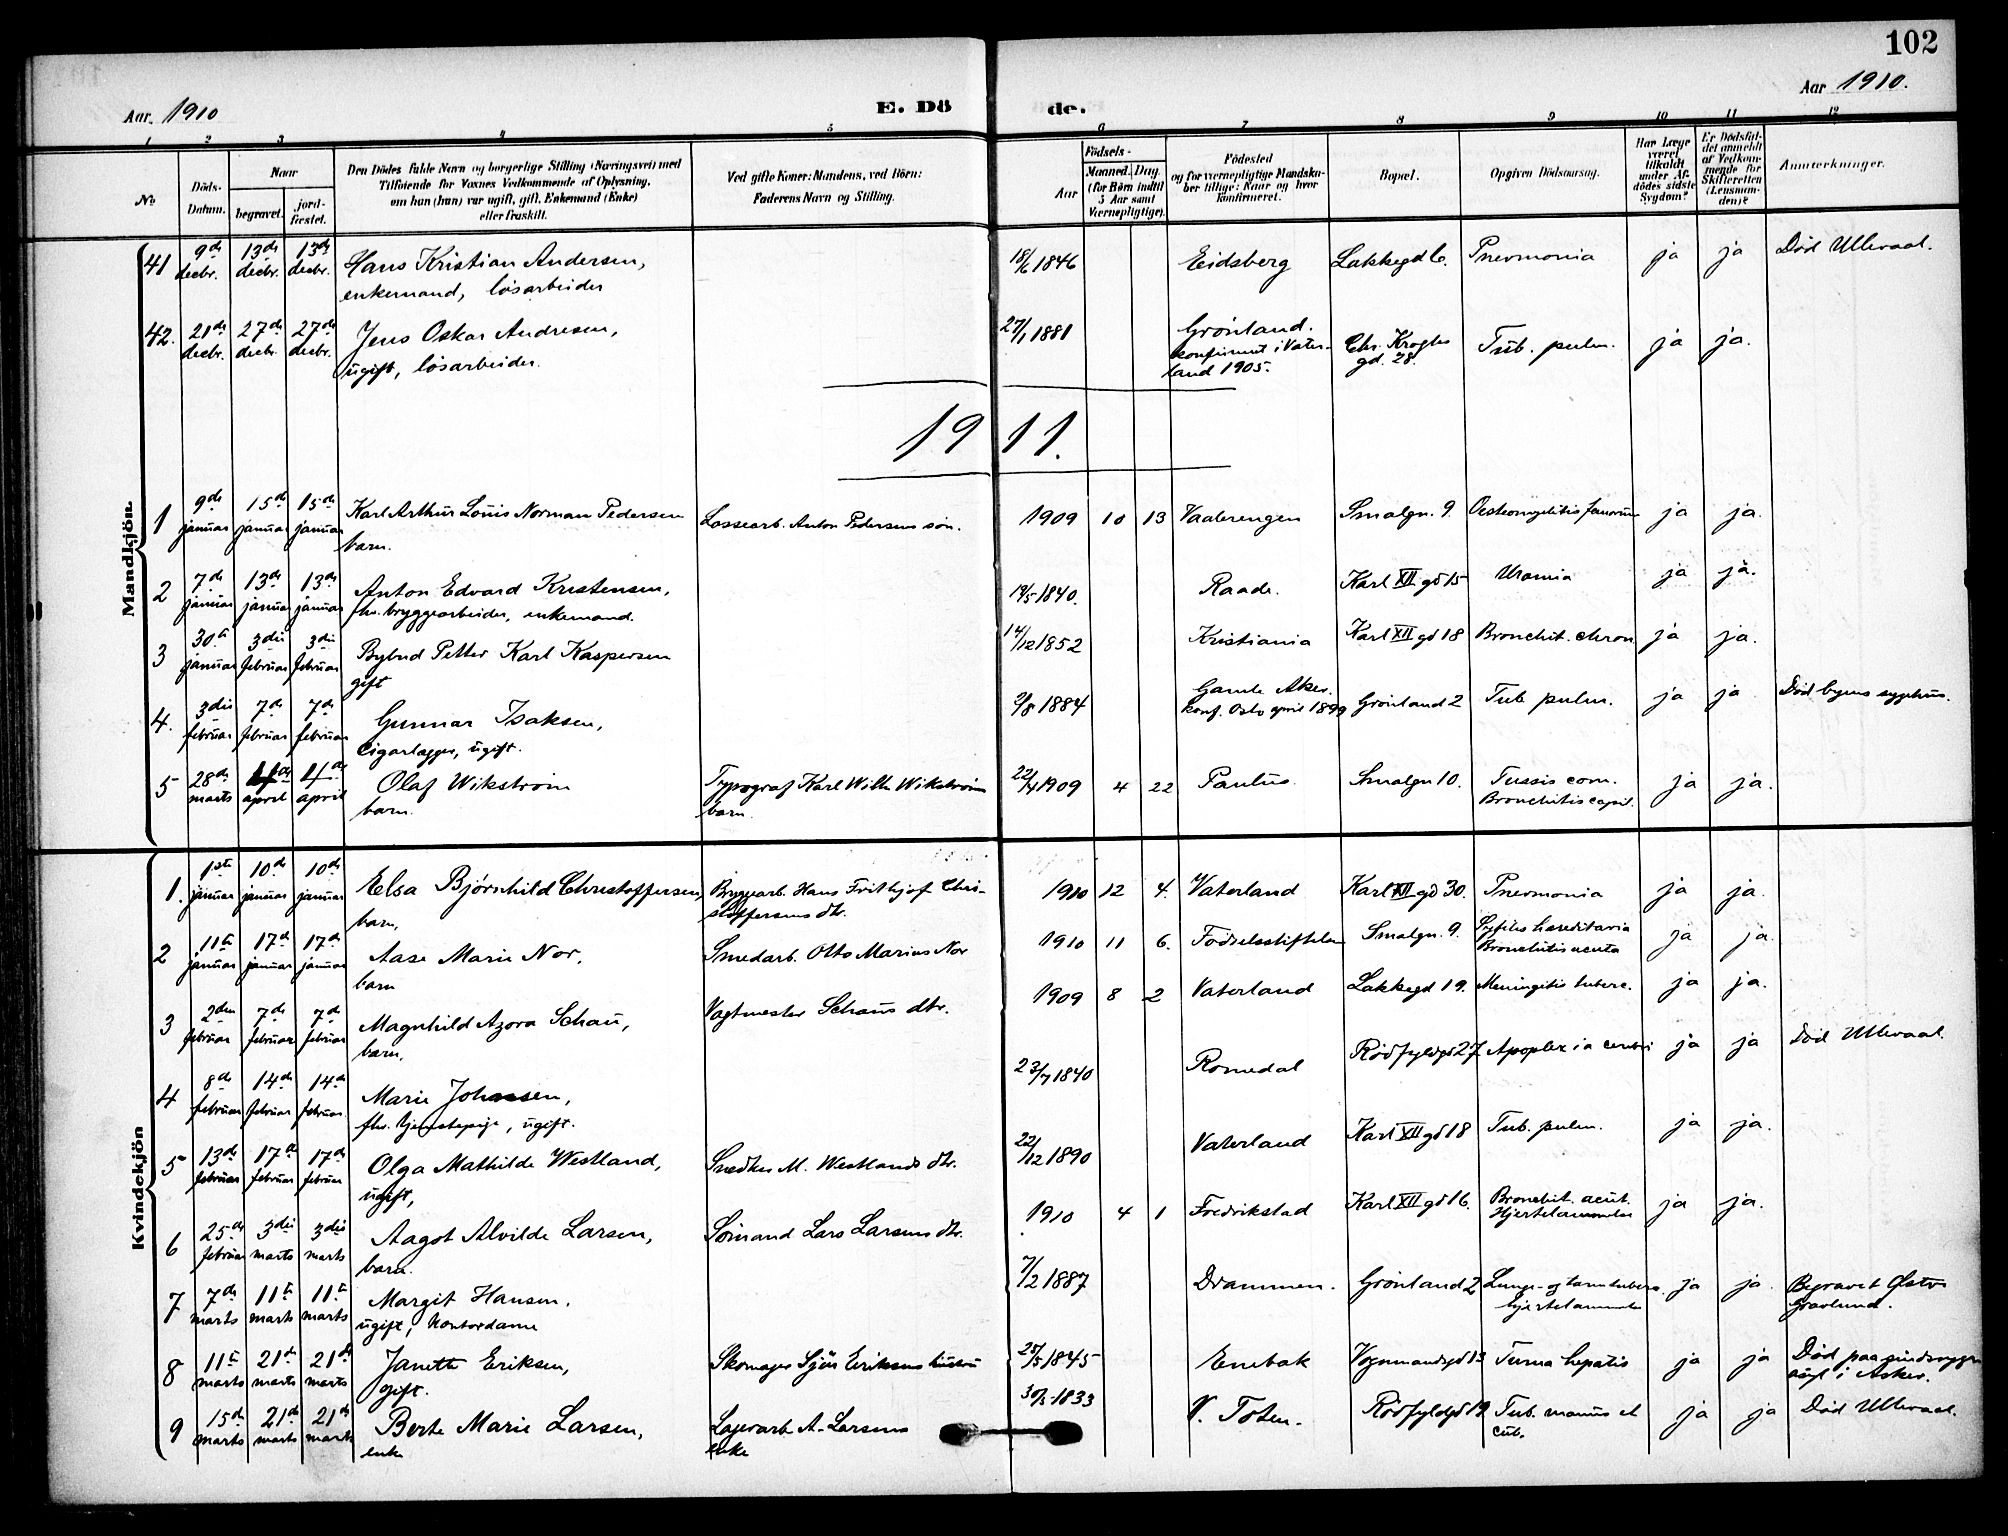 102
Aar 1910
E. Dö de.
Aar 1910.
1 2 3 4 5 6 7 8 9 10 11 12
No
Döds-Datum.
Naar
begravet.
jord-fæstet.
Den Dödes fulde Navn og borgerlige Stilling (Næringsvei) med
Tilföiende for Voxnes Vedkommende af Oplysning,
om han (hun) var ugift, gift, Enkemand (Enke)
eller fraskilt.
Ved gifte Koner: Mandens, ved Börn:
Faderens Navn og Stilling.
Födsels-
Aar
Maaned. Dag.
(for Börn indtil
5 Aar samt
Værnepligtige).
Födested
og for værnepligtige Mandska-
ber tillige: Naar og hvor
konfirmeret.
Bopæl.
Opgiven Dödsaarsag.
Har Læge
været
tilkaldt
under Af-
dödes sidste
Sygdom?
Er Dödsfal-
det anmeldt
af Vedkom-
mende for
Skifteretten
(Lensman-
den)?
Anmærkninger.
Mandkjön.
41 9de decbr. 13de decbr. 13de decbr. Hans Kristian Andersen, 18/6 1846 Eidsberg Lakkegd 6. Pnevmonia ja ja Död Ullevaal.
enkemand, lösarbeider
42. 21de decbr. 27de decbr. 27de decbr. Jens Oskar Andresen, 27/1 1881 Grönland. Chr. Kroghs gd. 28. Tub. pulm. ja ja.
ugift, lösarbeider. konfirmert i Vater-
land 1905.
1911.
1 9de januar 15de januar 15de januar Karl Arthur Louis Norman Pedersen Lossearb. Anton Pedersens sön. 1909 10 13 Vaalerengen Smalgn. 9. Osteomyelitis femorum ja ja.
barn.
2 7de januar 13de januar 13de januar Anton Edvard Kristensen, 19/5 1840. Raade. Karl XII gd 15 Uræmia ja ja.
fhv. bryggearbeider, enkemand.
3 30te januar 3die februar 3die februar Petter Karl Kaspersen 14/12 1852 Kristiania Karl XII gd 18 Bronchit. chron ja ja.
gift
4. 3die februar 7de februar 7de februar Gunnar Isaksen, 2/8 1884 Gamle Aker. Grönland 2 Tub. pulm. ja ja Död byens sygehus.
Cigarlægger, ugift. konf. Oslo april 1899
5 28de marts 1ste april 1ste april Olaf Wikström Typograf Karl Wilh. Wikströms 22/4 1909 4 22 Paulus Smalgn 10. Tussis conv. ja ja.
barn. barn. Bronchitis capil.
Kvindekjön
1. 1ste januar 10de januar 10de januar Elsa Björnhild Christoffersen, Bryggearb. Hans Frithjof Chri- 1910 12 4. Vaterland Karl XII gd 30. Pnevmonia ja ja.
barn, stoffersens dtr.
2 11te januar 17de januar 17de januar Aase Marie Nor, Smedarb. Otto Marius Nor 1910 11 6. Födselsstiftelsen Smalgn. 9. Syfiles hereditaria ja ja.
barn Bronchitis acuta
3 2den februar 7de februar 7de februar Magnhild Azora Schau, Vagtmester Schaus dtr. 1909 8 2 Vaterland Lakkegd 19. Meningitis tuberc. ja ja.
barn,
4 8de februar 14de februar 14de februar Marie Johansen, 23/7 1840 Romedal Rödfyldgd 27 Apoplexia cerebri ja ja Död Ullevaal.
fhv. tjenestepige, ugift.
5 13de februar 17de februar 17de februar Olga Mathilde Westland, Snedker M. Westlands dtr. 22/12 1890 Vaterland Karl XII gd 18 Tub. pulm. ja ja.
ugift,
6 25de februar 3die marts 3die marts Aagot Alvilde Larsen, Sömand Lars Larsens dtr. 1910 4 1 Fredrikstad Karl XII gd 16. Bronchit. acut. ja ja.
barn. Hjertelammelse
7 7de marts 11te marts 11te marts Margit Hansen. 7/2 1887 Drammen. Grönland 2 Lunge- og tarmtuberc. ja ja. Begravet Østre
ugift, Kontordame hjertelammelse Gravlund.
8 11te marts 21de marts 21de marts Janette Eriksen, Skomager Eriksens hustru 25/5 1845 Enebak Vognmandsgd 13 hepatis ja ja Död paa sindssyge-
gift. asyl i Asker.
9 15de marts 21de marts 21de marts Berte Marie Larsen, Lagerarb. A. Larsens 1833 V. Toten. Rödfyldgd 19 Tub. manus et ja ja Död Ullevaal.
enke enke cub.